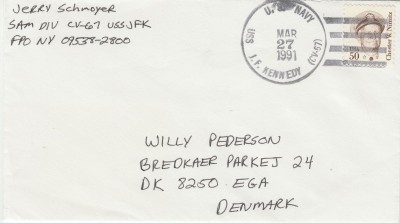 Jerry Schmoyer
SAM DIV CV-67 USSJFK
FPO NY 09538-2800
U.S. NAVY
MAR
27
1991
USS J.F. KENNEDY (CV-67)
50
Chester W. Nimitz
WILLY PEDERSON
BREDKAER PARKEJ 24
DK 8250 EGA
DENMARK